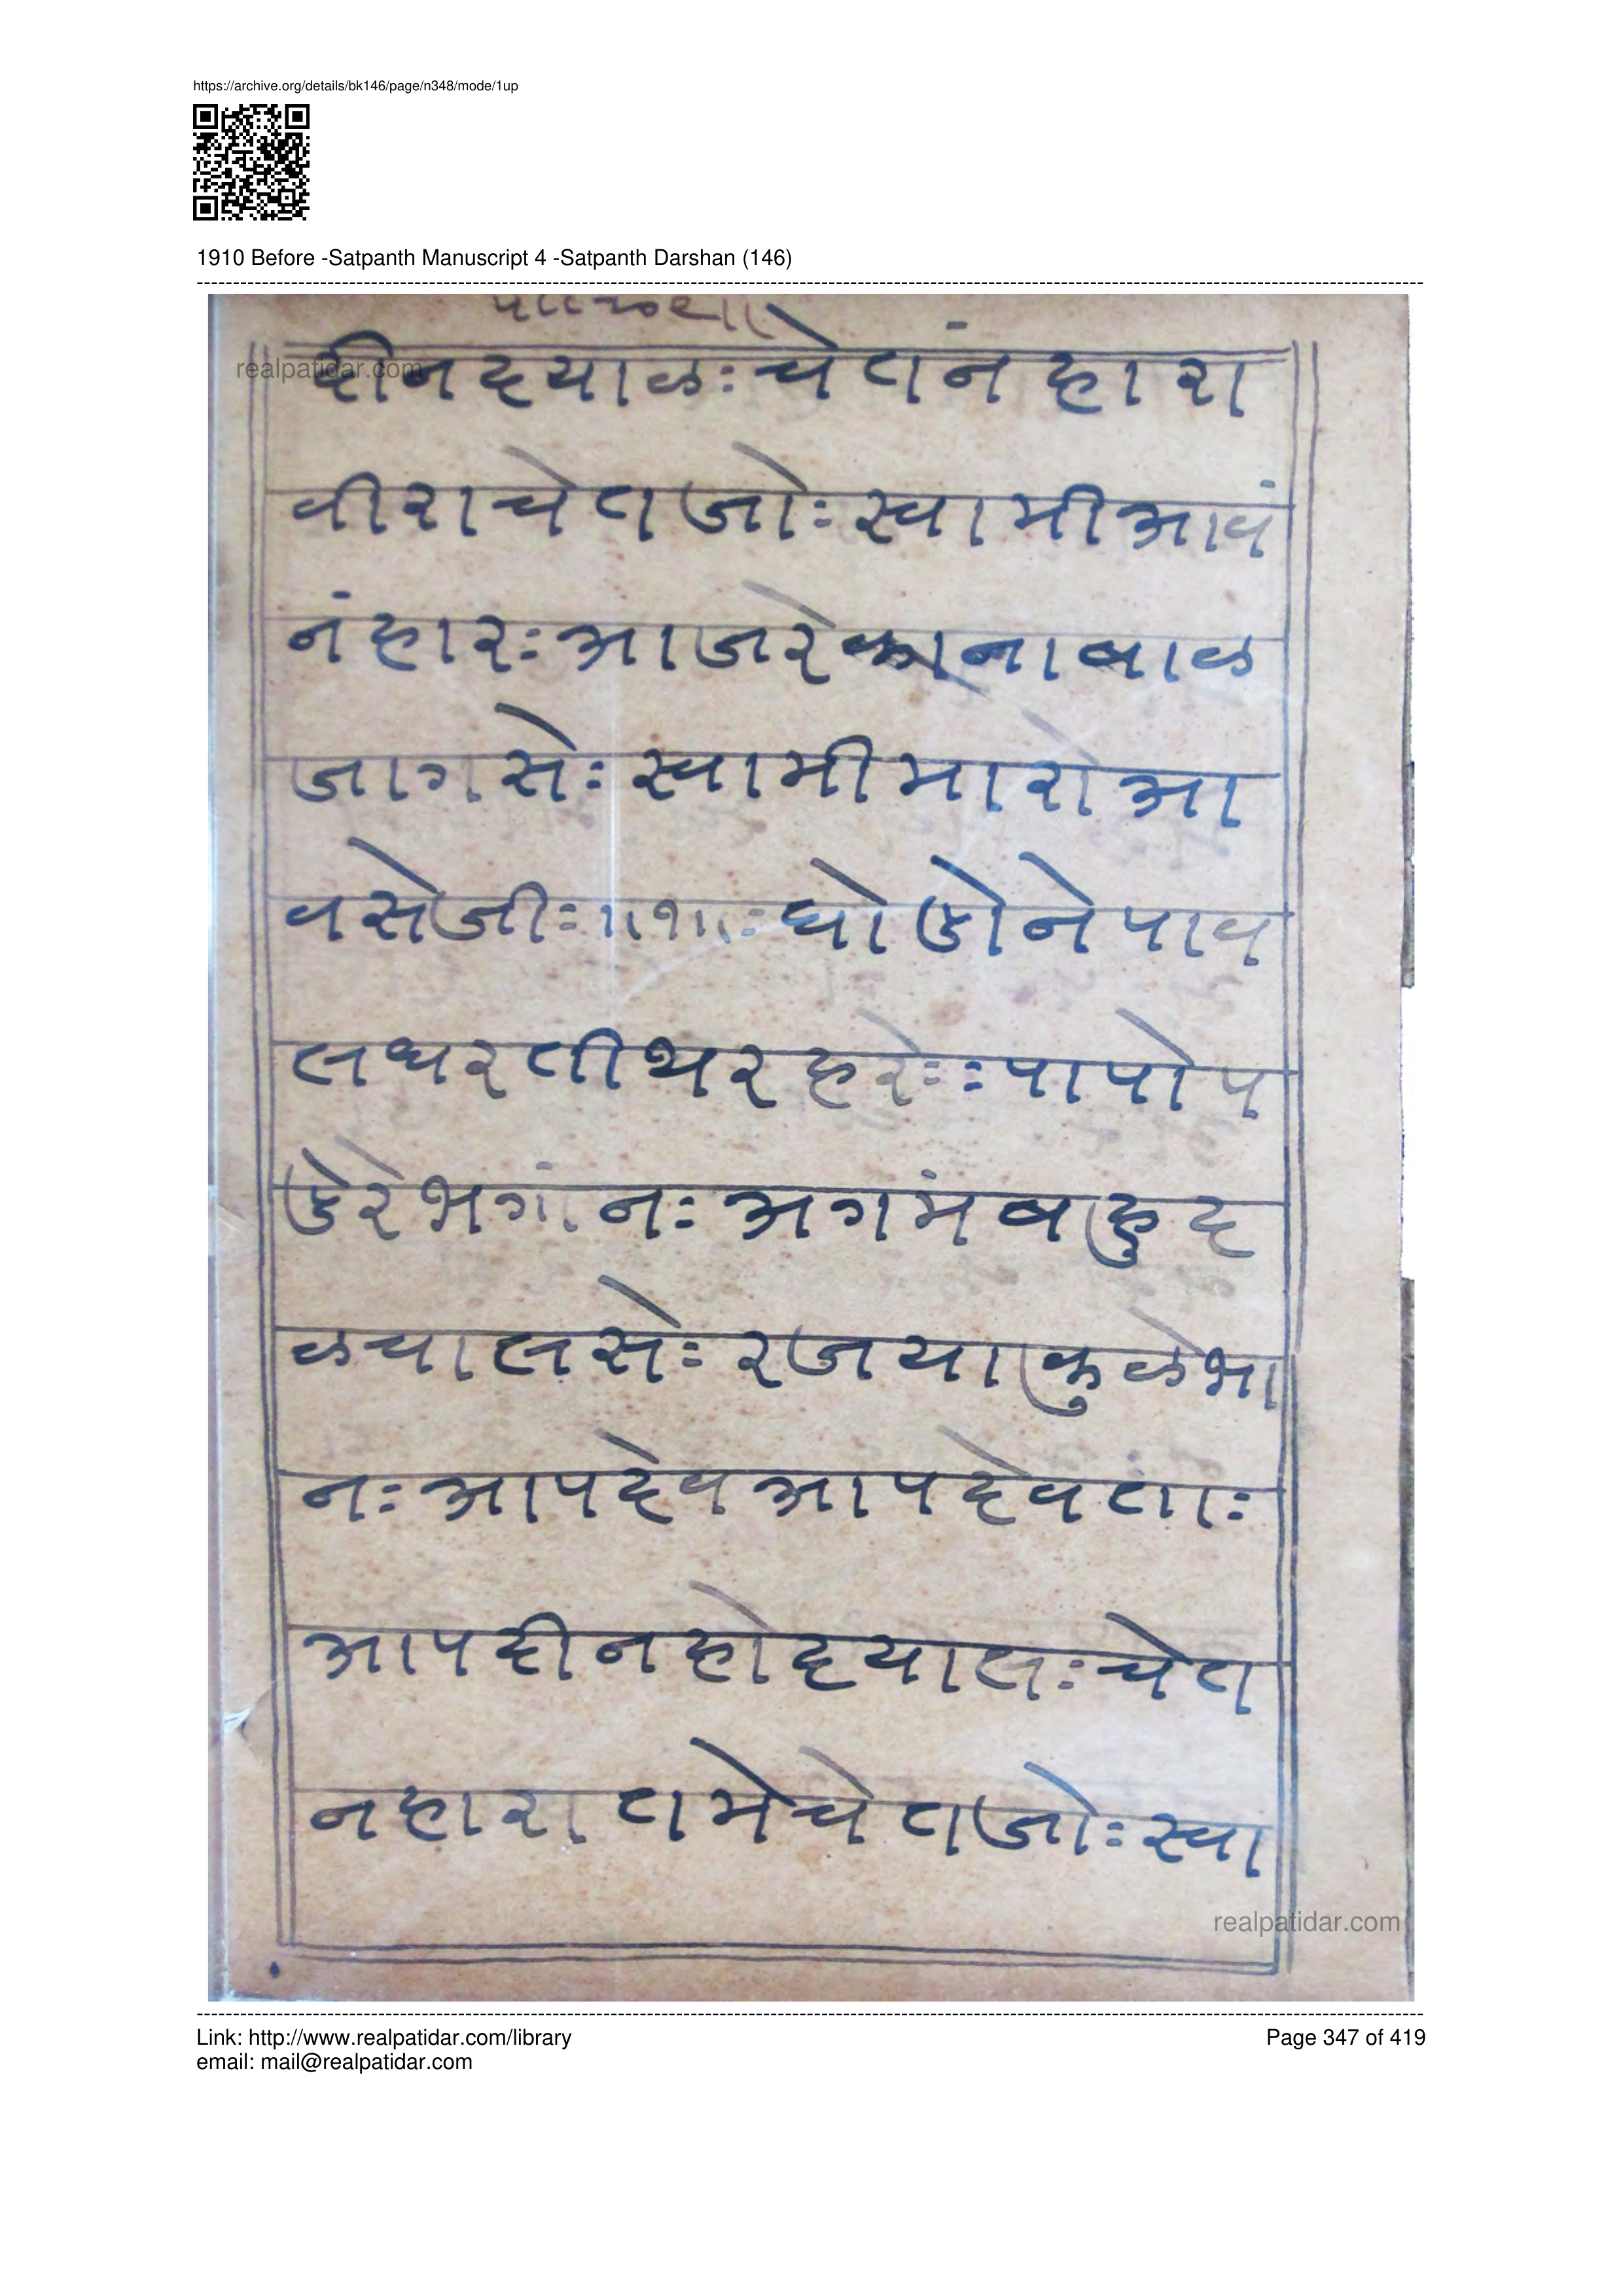 https://archive.org/details/bk146/page/n348/mode/1up
1910 Before -Satpanth Manuscript 4 -Satpanth Darshan (146)
realpatidar.com
दीनदयाळः चेतानंहारा
वीराचेताजोः स्वामीआवं
नंहारः आजरेकानाबाळ
जागसेः स्वामीमारोआ
वसेजीः ॥१॥ः घोडोनेपाव
लधरतीथरहरेः ः पापोप
डेरेभगांनः अगमंबहुद
ळचालसेः रजयाकुळभा
नः आपदेवआपदेवताः
आपदीनहोदयालः चेता
नहारातामेचेताजोः स्वा
realpatidar.com
Link: http://www.realpatidar.com/library
Page 347 of 419
email: mail@realpatidar.com